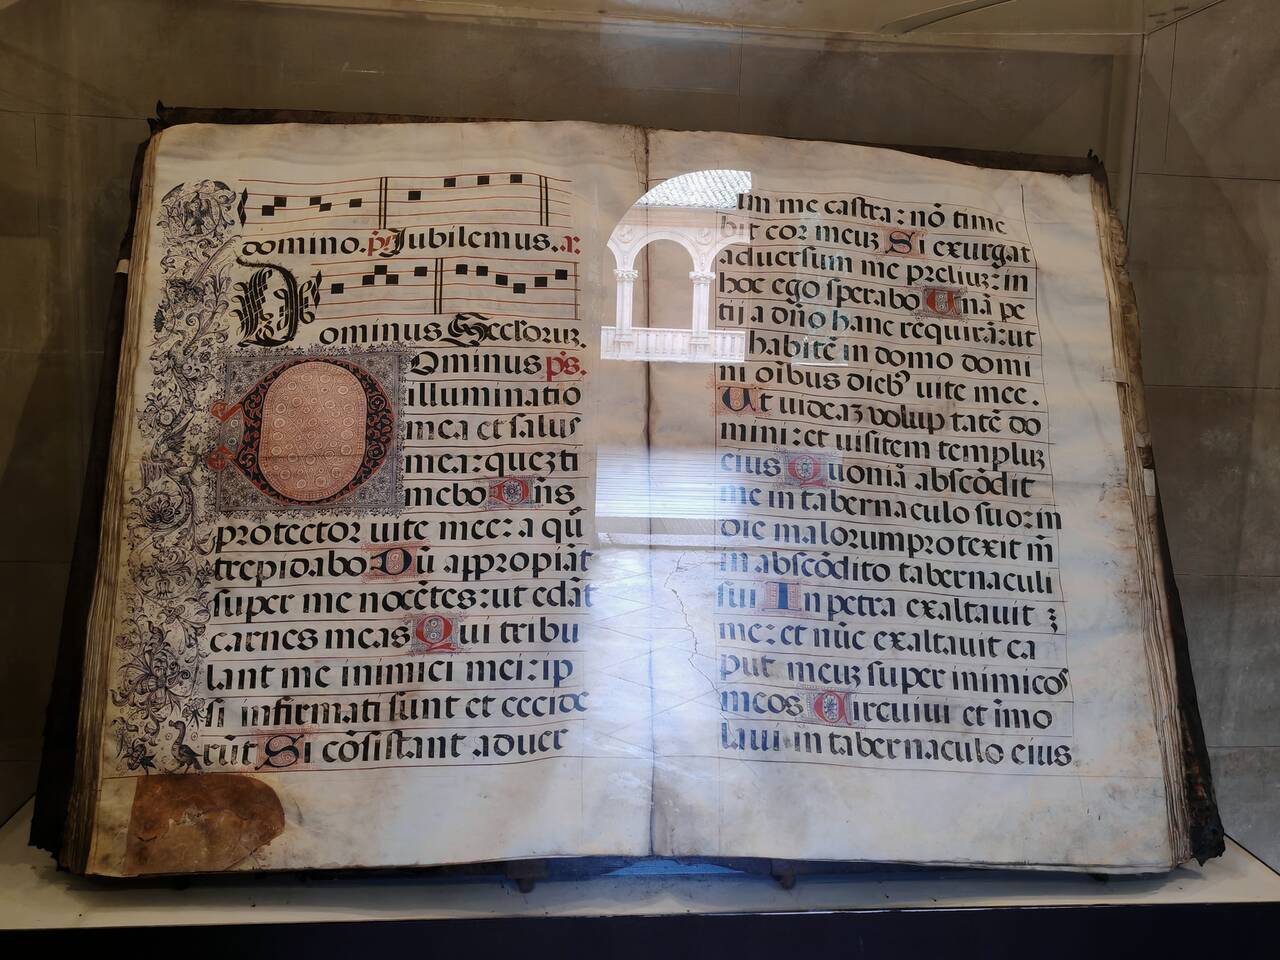 domino. p̄s Jubilemus. a͞
Dominus Defensor uite.
Ominus p̄s.
illuminatio
mea et salus
mea: quez ti
mebo D͞ns
protector uite mee: a qū
trepidabo Dū appropiāt
super me nocētes: ut edāt
carnes meas Qui tribu
lant me inimici mei: ip
si infirmati sunt et cecide
rūt Si cōsistant aduer
ım me castra: nō time
bit cor meuz Si exurgat
aduersum me preliuz: in
hoc ego sperabo Unā pe
tij a dn̄o hanc requirā: ut
habitē in domo domi
ni oībus dieb⁹ uite mee.
Ut uideaz volup tatē do
mini: et uisitem templuz
eius Quoniā abscōdit
me in tabernaculo suo: in
die malorum protexit m̄
in abscōdito tabernaculi
sui In petra exaltauit ꝫ
me: et nūc exaltauit ca
put meuz super inimicos
meos Circuiui et īmo
laui in tabernaculo eius